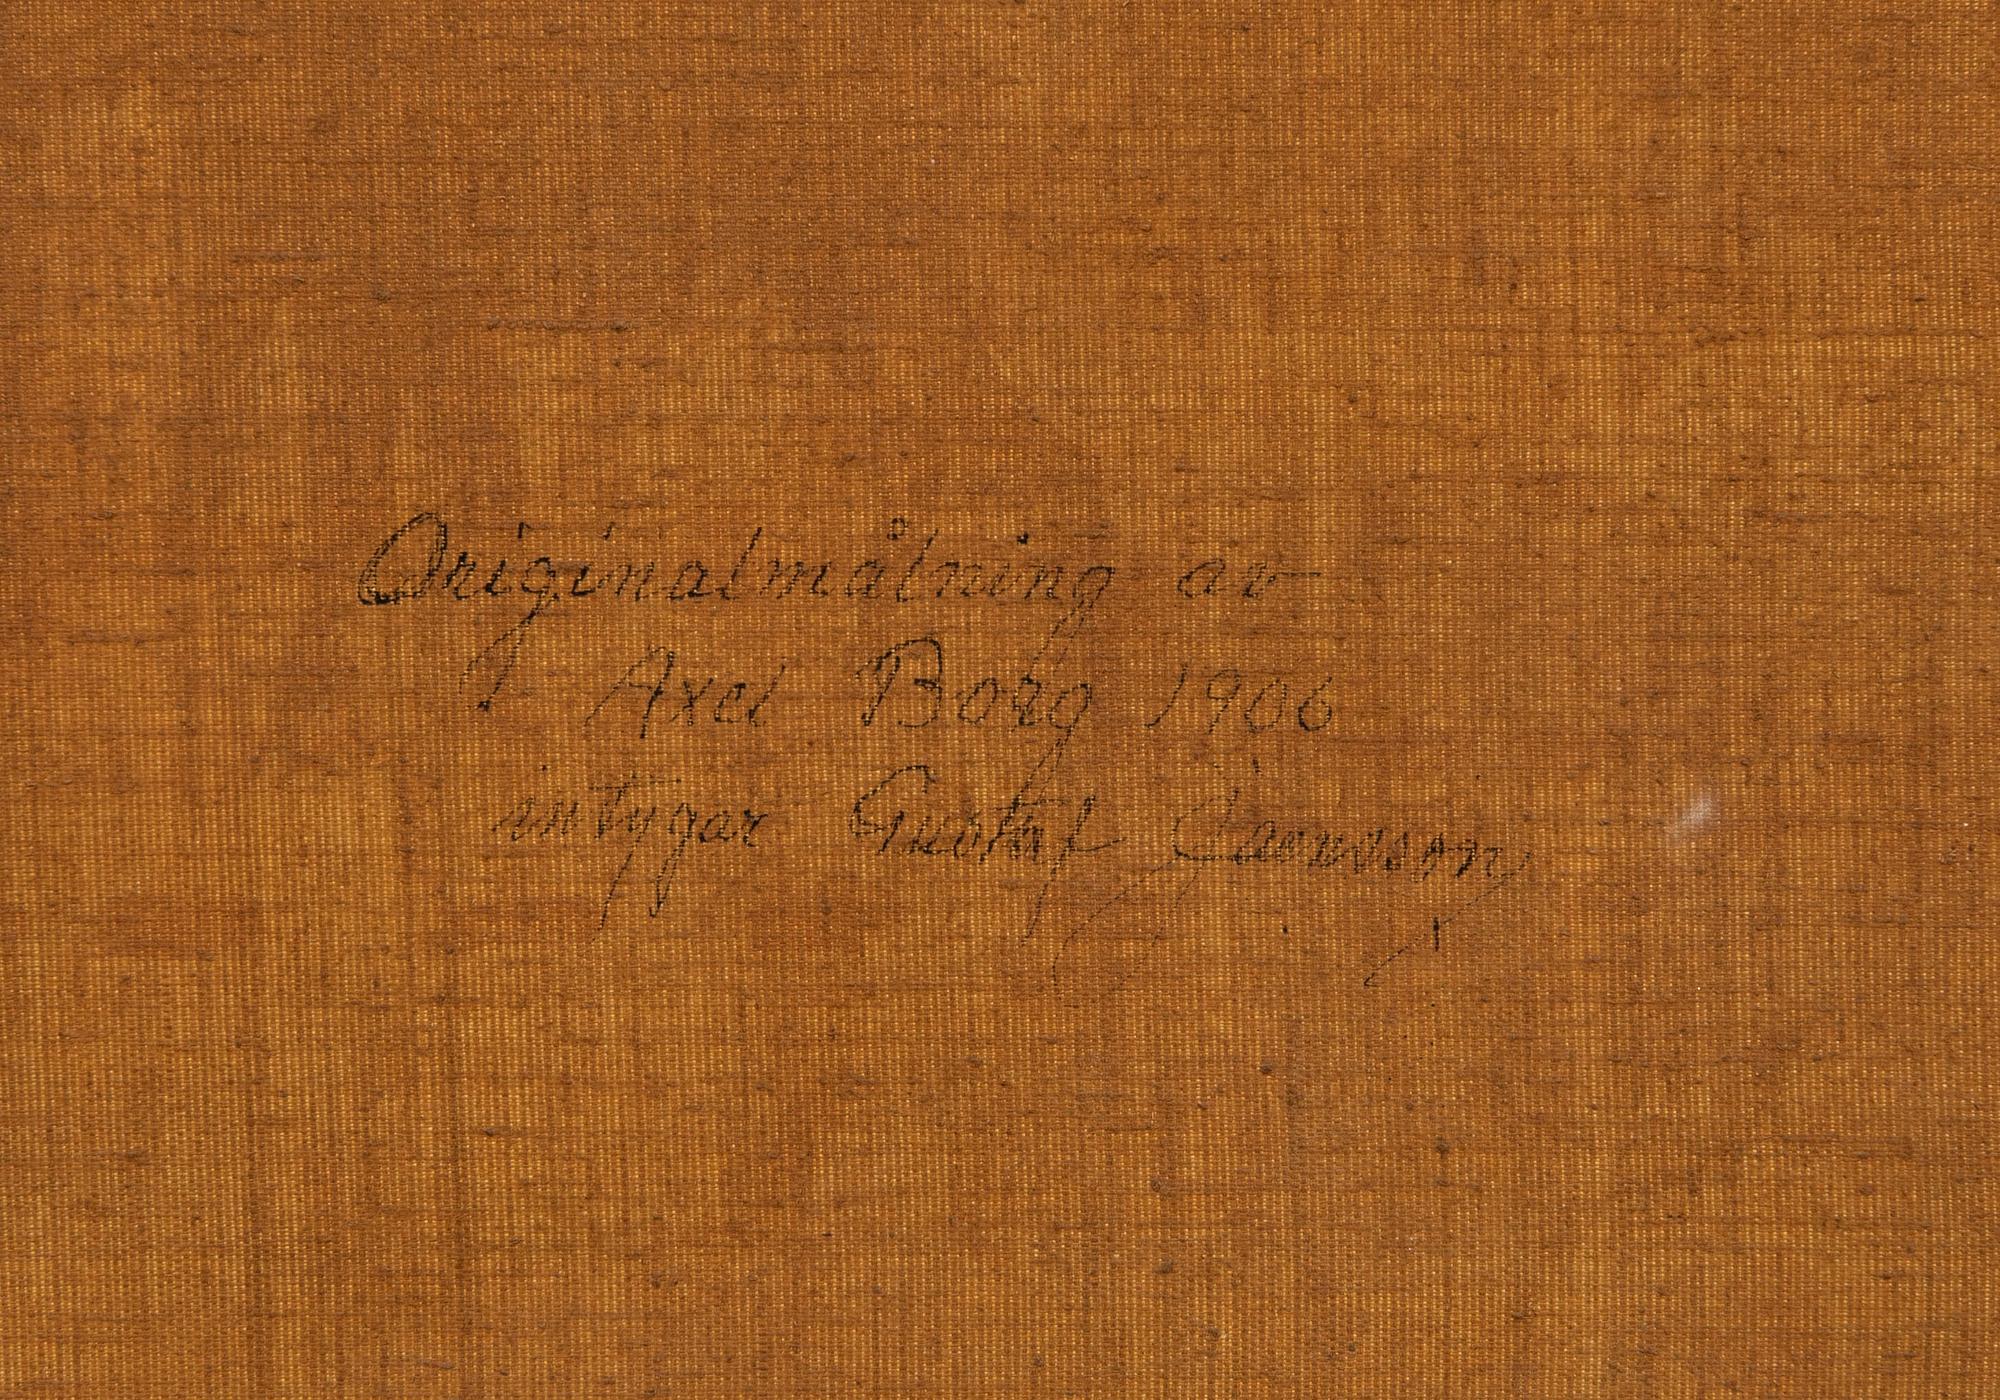 Originalmålning av
Axel Borg 1906
intygar Gustaf